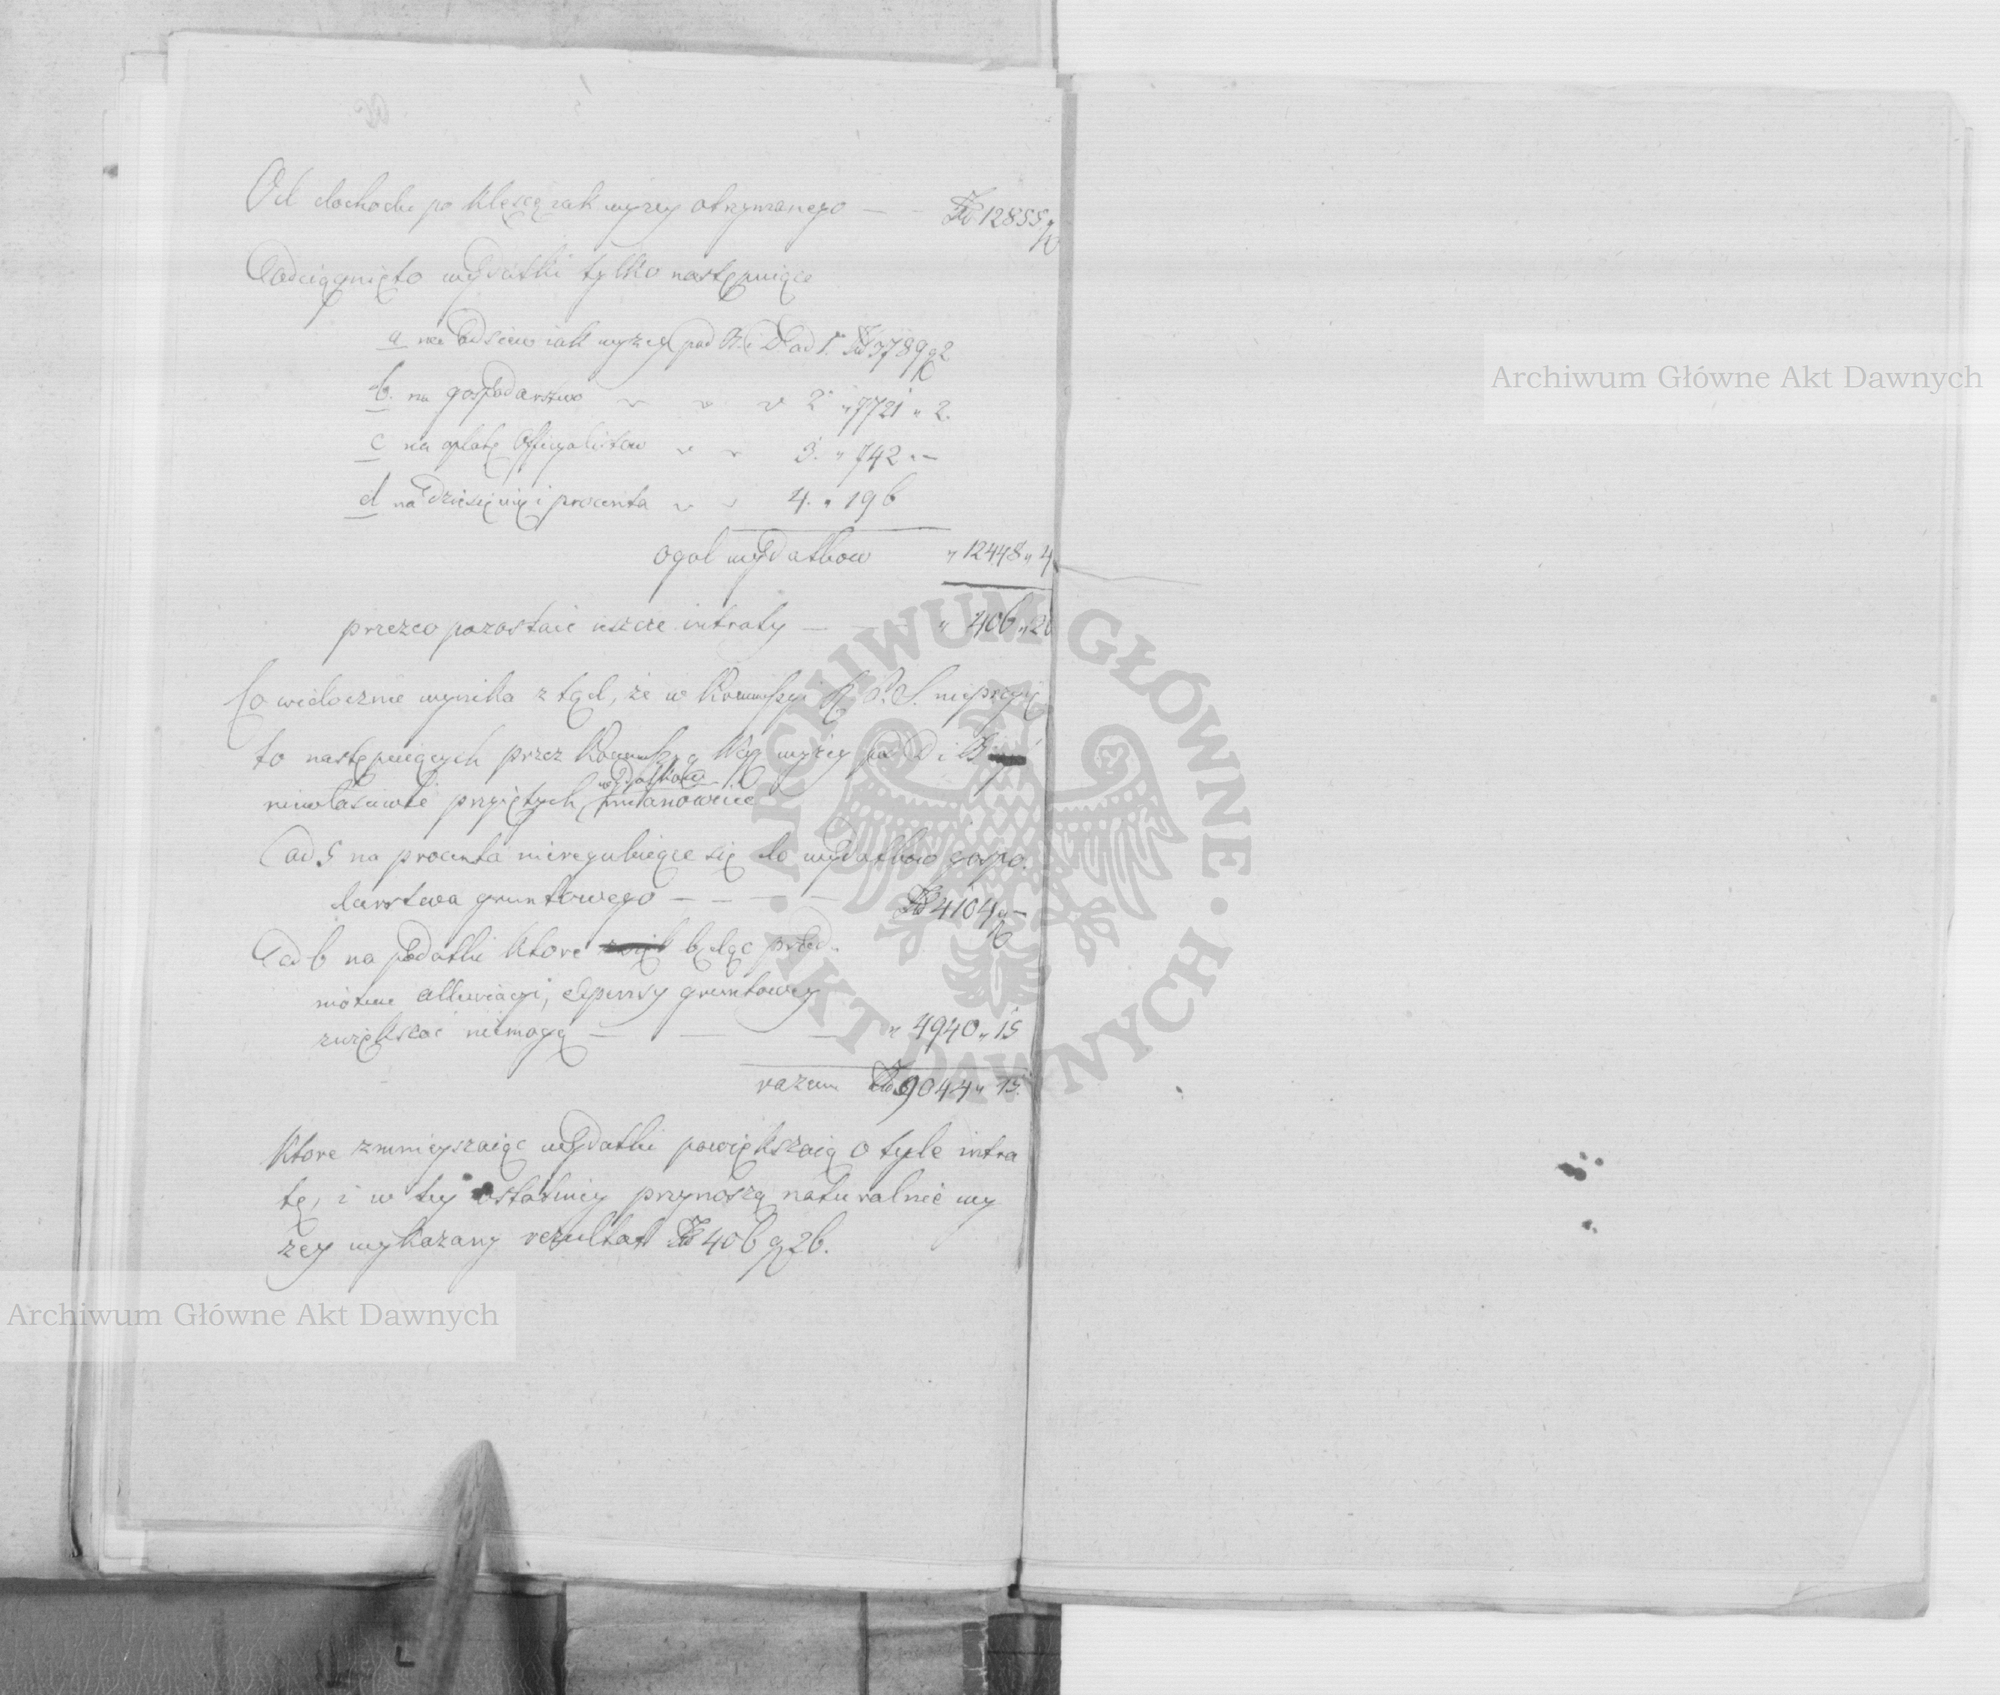 Od dochodu po klęsce iak wyzey otrzymanego — — Złł 12855 g
odciągnięto wydatki tylko następuiące
a na odsiew iak wyzey pod B. i D ad 1. Złł 3789 g 2
b. na gospodarstwo " " " 2 " 7721 " 2.
c na opłatę officyalistow " " 3. " 742 " –
d na dziesięcinę i procenta " " 4. " 196
ogoł wydatkow " 12448 " 4
przezco pozostaie ieszcze intraty — — " 406 " 26
Co widocznie wynika z tąd, że w Kommissyi R. P. S. nieprzyię
to następuiących przez Kommissyą wyzey pod D i B
niewłasciwie przyiętych wydatkow mianowicie
ad 5 na procenta nieregulujące się do wydatkow gospo.
darstwa gruntowego — — — — Złł 4104 g –
ad 6 na podatki ktore będąc przed-
miotem alleviacyi, expensy gruntowey
zwiększać niemogą — — — " 4940 " 15
razem Złł 9044 " 15.
Ktore zmnieyszaiąc wydatki powiększaią o tyle intra
tę, i w tey ostatniey przynoszą naturalnie wy
zey wykazany rezultat Złł 406 g 26.
Archiwum Główne Akt Dawnych
Archiwum Główne Akt Dawnych
ARCHIWUM GŁÓWNE · AKT DAWNYCH ·